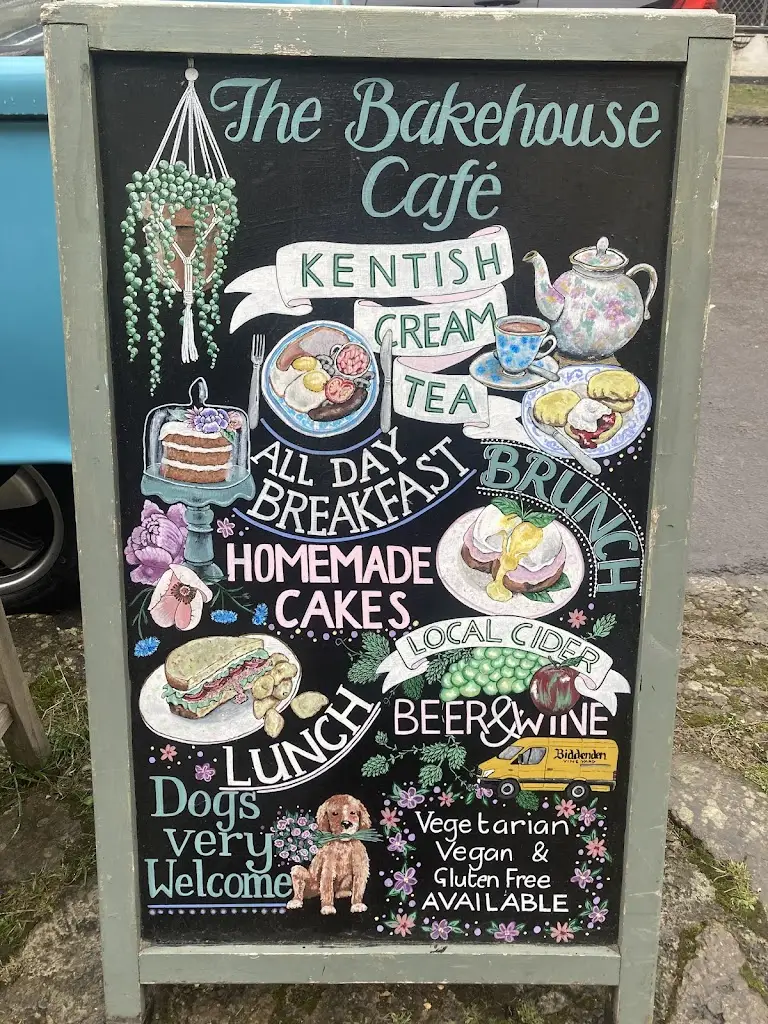 The Bakehouse
Café
KENTISH
CREAM
TEA
ALL DAY
BREAKFAST
BRUNCH
HOMEMADE
CAKES
LOCAL CIDER
BEER & WINE
LUNCH
Biddenden
VINEYARD
Dogs
very
Welcome
Vegetarian
Vegan &
Gluten Free
AVAILABLE